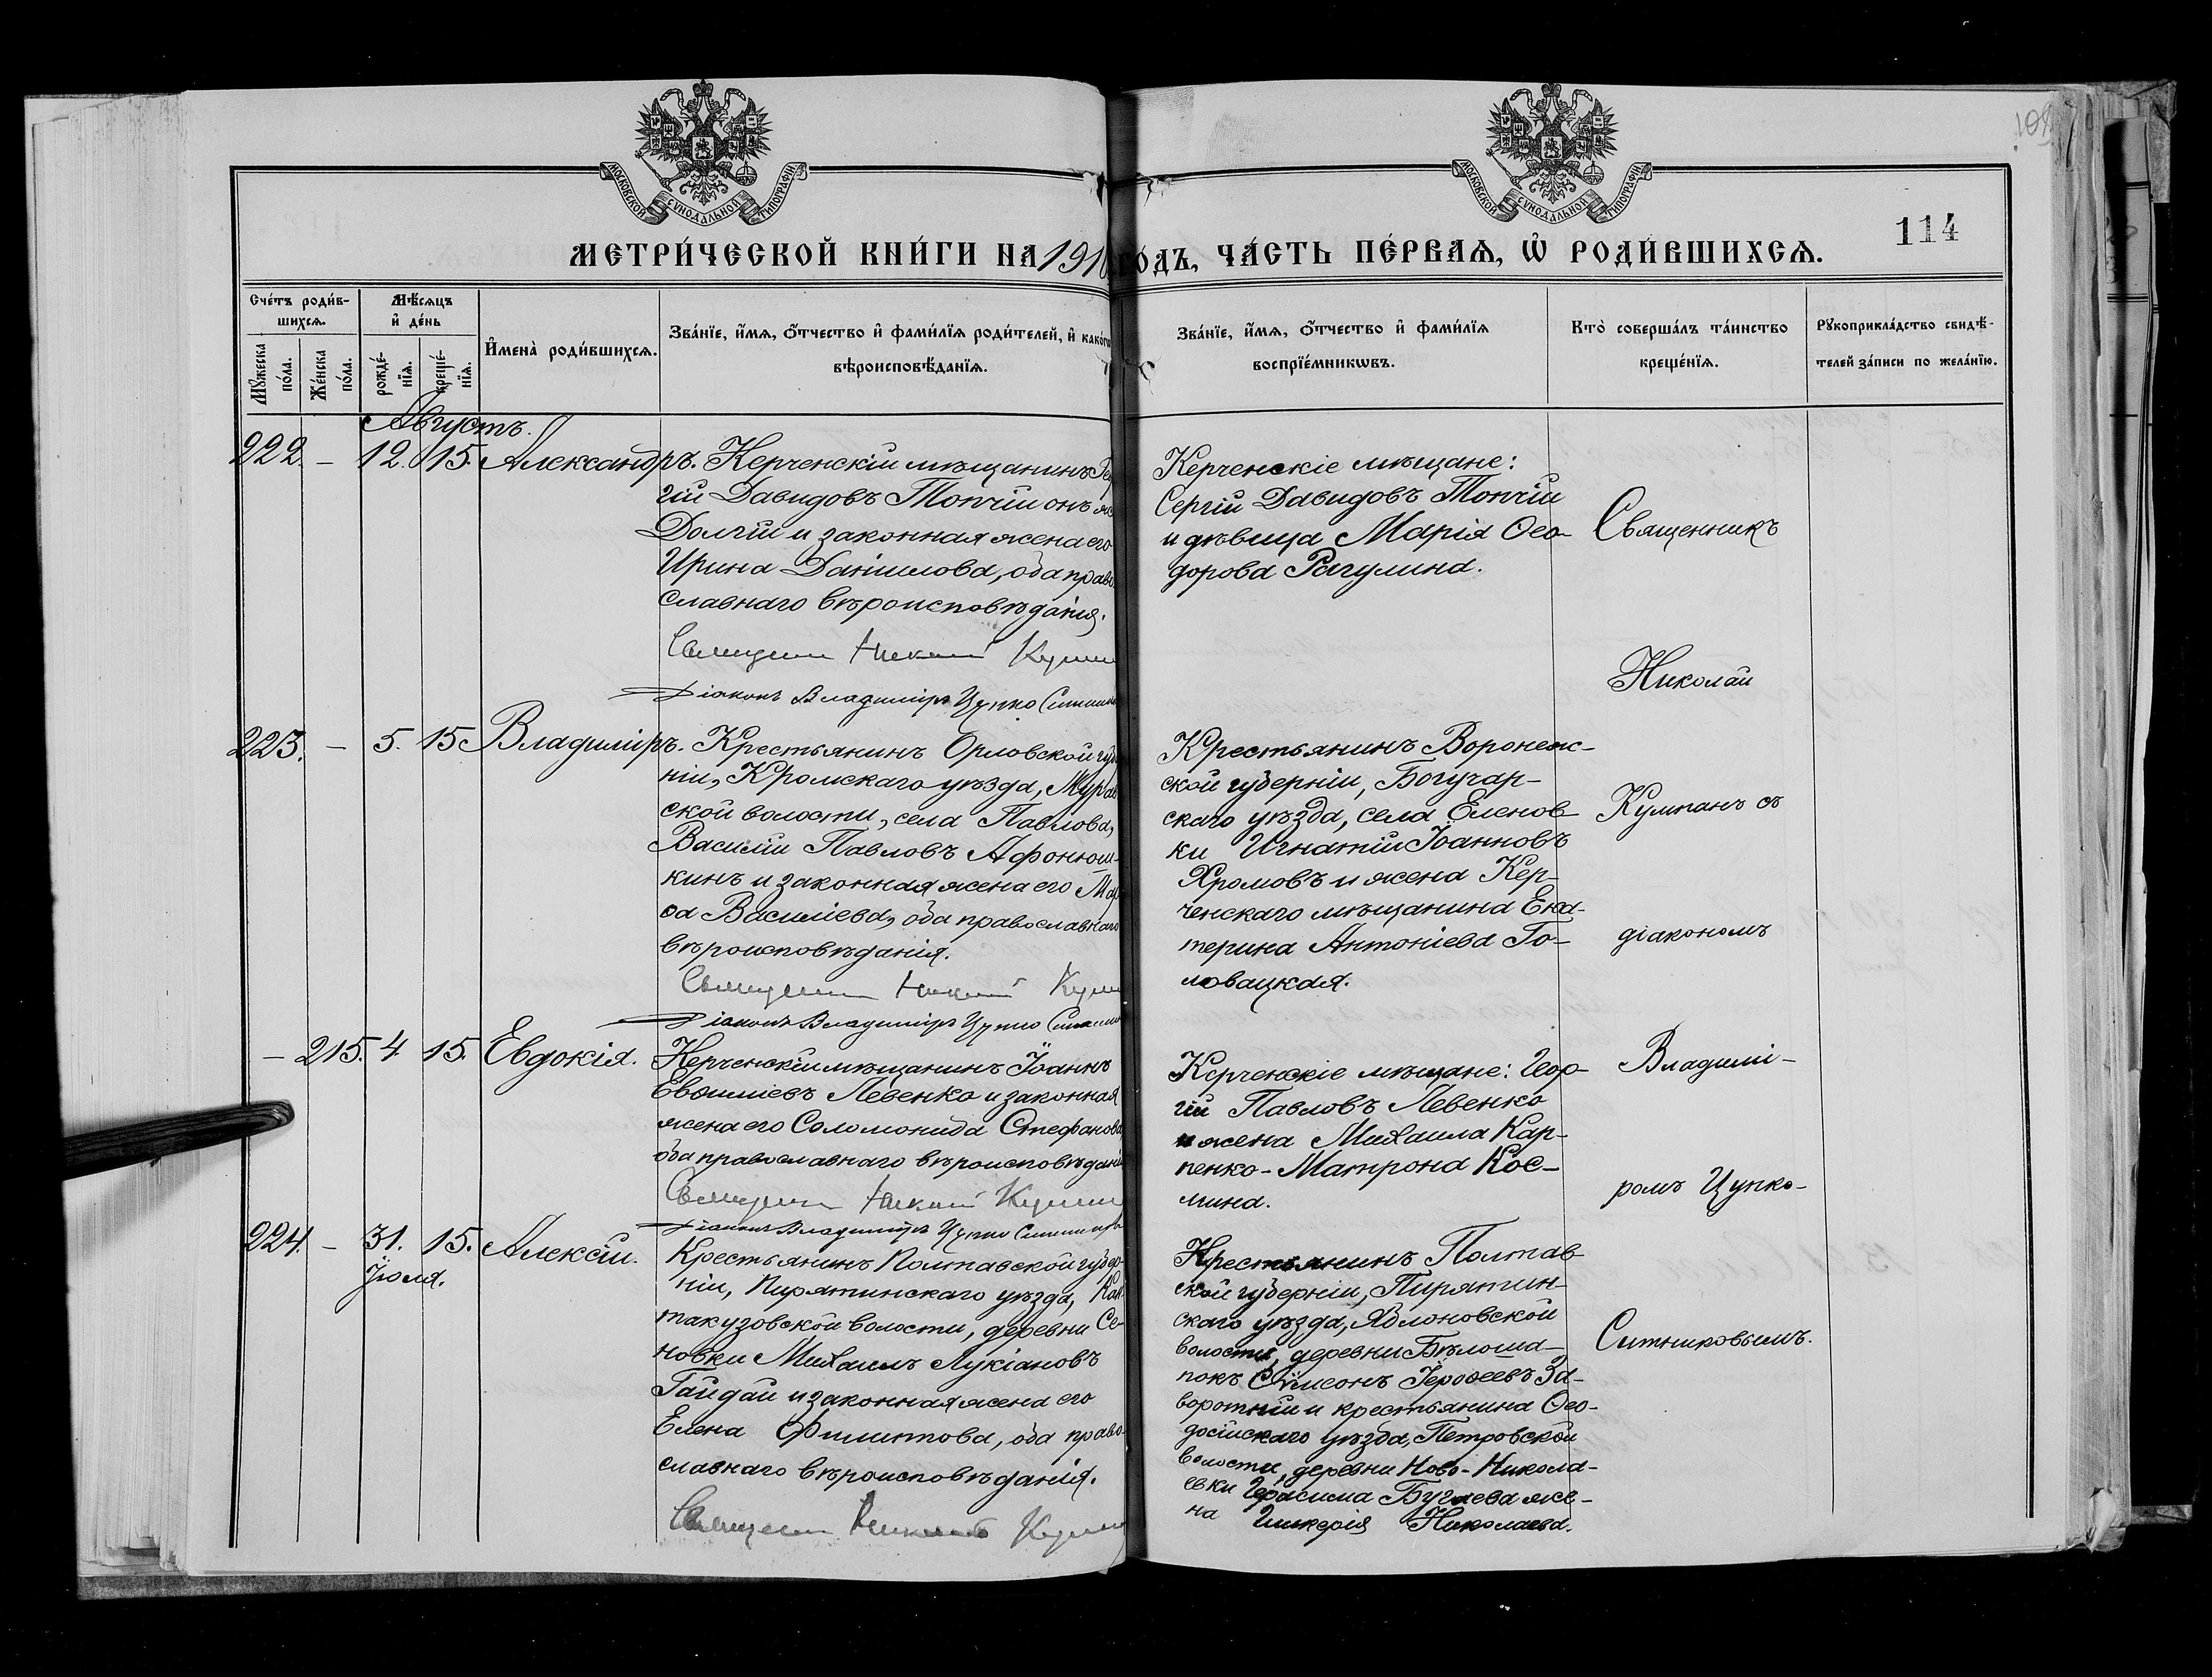 МОСКОВСКОЙ СѴНОДАЛЬНОЙ ТИПОГРАФІИ.
МОСКОВСКОЙ СѴНОДАЛЬНОЙ ТИПОГРАФІИ.
114
МЕТРИ́ЧЕСКОЙ КНИ́ГИ НА 1910 ГО́ДЪ, ЧА́СТЬ ПЕ́РВАѦ, Ѡ҆ РОДИ́ВШИХСѦ.
Сче́тъ роди́в-
шихсѧ.
Мꙋ́жеска
по́ла.
Же́нска
по́ла.
Мѣ́сѧцъ
и҆ де́нь
рожде́-
нїѧ.
креще́-
нїѧ.
И҆мена̀ роди́вшихсѧ.
Зва́нїе, и҆́мѧ, ѻ҆́тчество и҆ фами́лїѧ роди́телей, и҆ како́гѡ
вѣроисповѣ́данїѧ.
Зва́нїе, и҆́мѧ, ѻ҆́тчество и҆ фами́лїѧ
воспрїе́мникѡвъ.
Кто̀ соверша́лъ та́инство
креще́нїѧ.
Рꙋкоприкла́дство свидѣ́-
телей за́писи по жела́нїю.
Августъ.
222. – 12. 15. Александръ.
Керченскій мѣщанинъ
гій Давидовъ Топчій онъ же
Долгій и законная жена его
Ирина Даніилова, оба право
славнаго вѣроисповѣданія.
Священникъ Николай Кумпанъ
Діаконъ Владиміръ Цупко Ситников
Керченскіе мѣщане:
Сергій Давидовъ Топчій
и дѣвица Марія Ѳео-
дорова Рагулина.
223. – 5. 15 Владиміръ.
Крестьянинъ Орловской губ
ніи, Кромскаго уѣзда, Мурав
ской волости, села Павлова,
Василій Павловъ Афонюш-
кинъ и законная жена его Мар
ѳа Василіева, оба православнаго
вѣроисповѣданія.
Священникъ Николай Кумпанъ
Діаконъ Владиміръ Цупко Ситников
Крестьянинъ Воронеж-
ской губерніи, Богучар-
скаго уѣзда, села Еленов-
ки Игнатій Іоанновъ
Хромовъ и жена Кер-
ченскаго мѣщанина Ека-
терина Антоніева Го-
ловацкая.
– 215. 4. 15. Евдокія.
Керченскій мѣщанинъ Іоаннъ
Евѳиміевъ Левенко и законная
жена его Соломонида Стефанова
оба православнаго вѣроисповѣданія
Священникъ Николай Кумпанъ
Діаконъ Владиміръ Цупко Ситников
Керченскіе мѣщане: Геор-
гій Павловъ Левенко
и жена Михаила Кар-
пенко - Матрона Кос-
мина.
224. – 31. 15. Алексій.
Іюля.
Крестьянинъ Полтавской губер
ніи, Пирятинскаго уѣзда, Кан
такузовской волости, деревни Се-
новки Михаилъ Лукіановъ
Гайдай и законная жена его
Елена Филиппова, оба право-
славнаго вѣроисповѣданія.
Священникъ Николай Кумпанъ
Крестьянинъ Полтав-
ской губерніи, Пирятин-
скаго уѣзда, Яблоновской
волости, деревни Бѣлоша-
покъ Сѷмеонъ Іероѳеевъ За-
воротній и крестьянина Ѳео-
досійскаго уѣзда, Петровской
волости, деревни Ново-Никола-
евки Герасима Бугаева же-
на Гликерія Николаева.
Священникъ
Николай
Кумпанъ съ
діакономъ
Владимі-
ромъ Цупко-
Ситниковымъ.